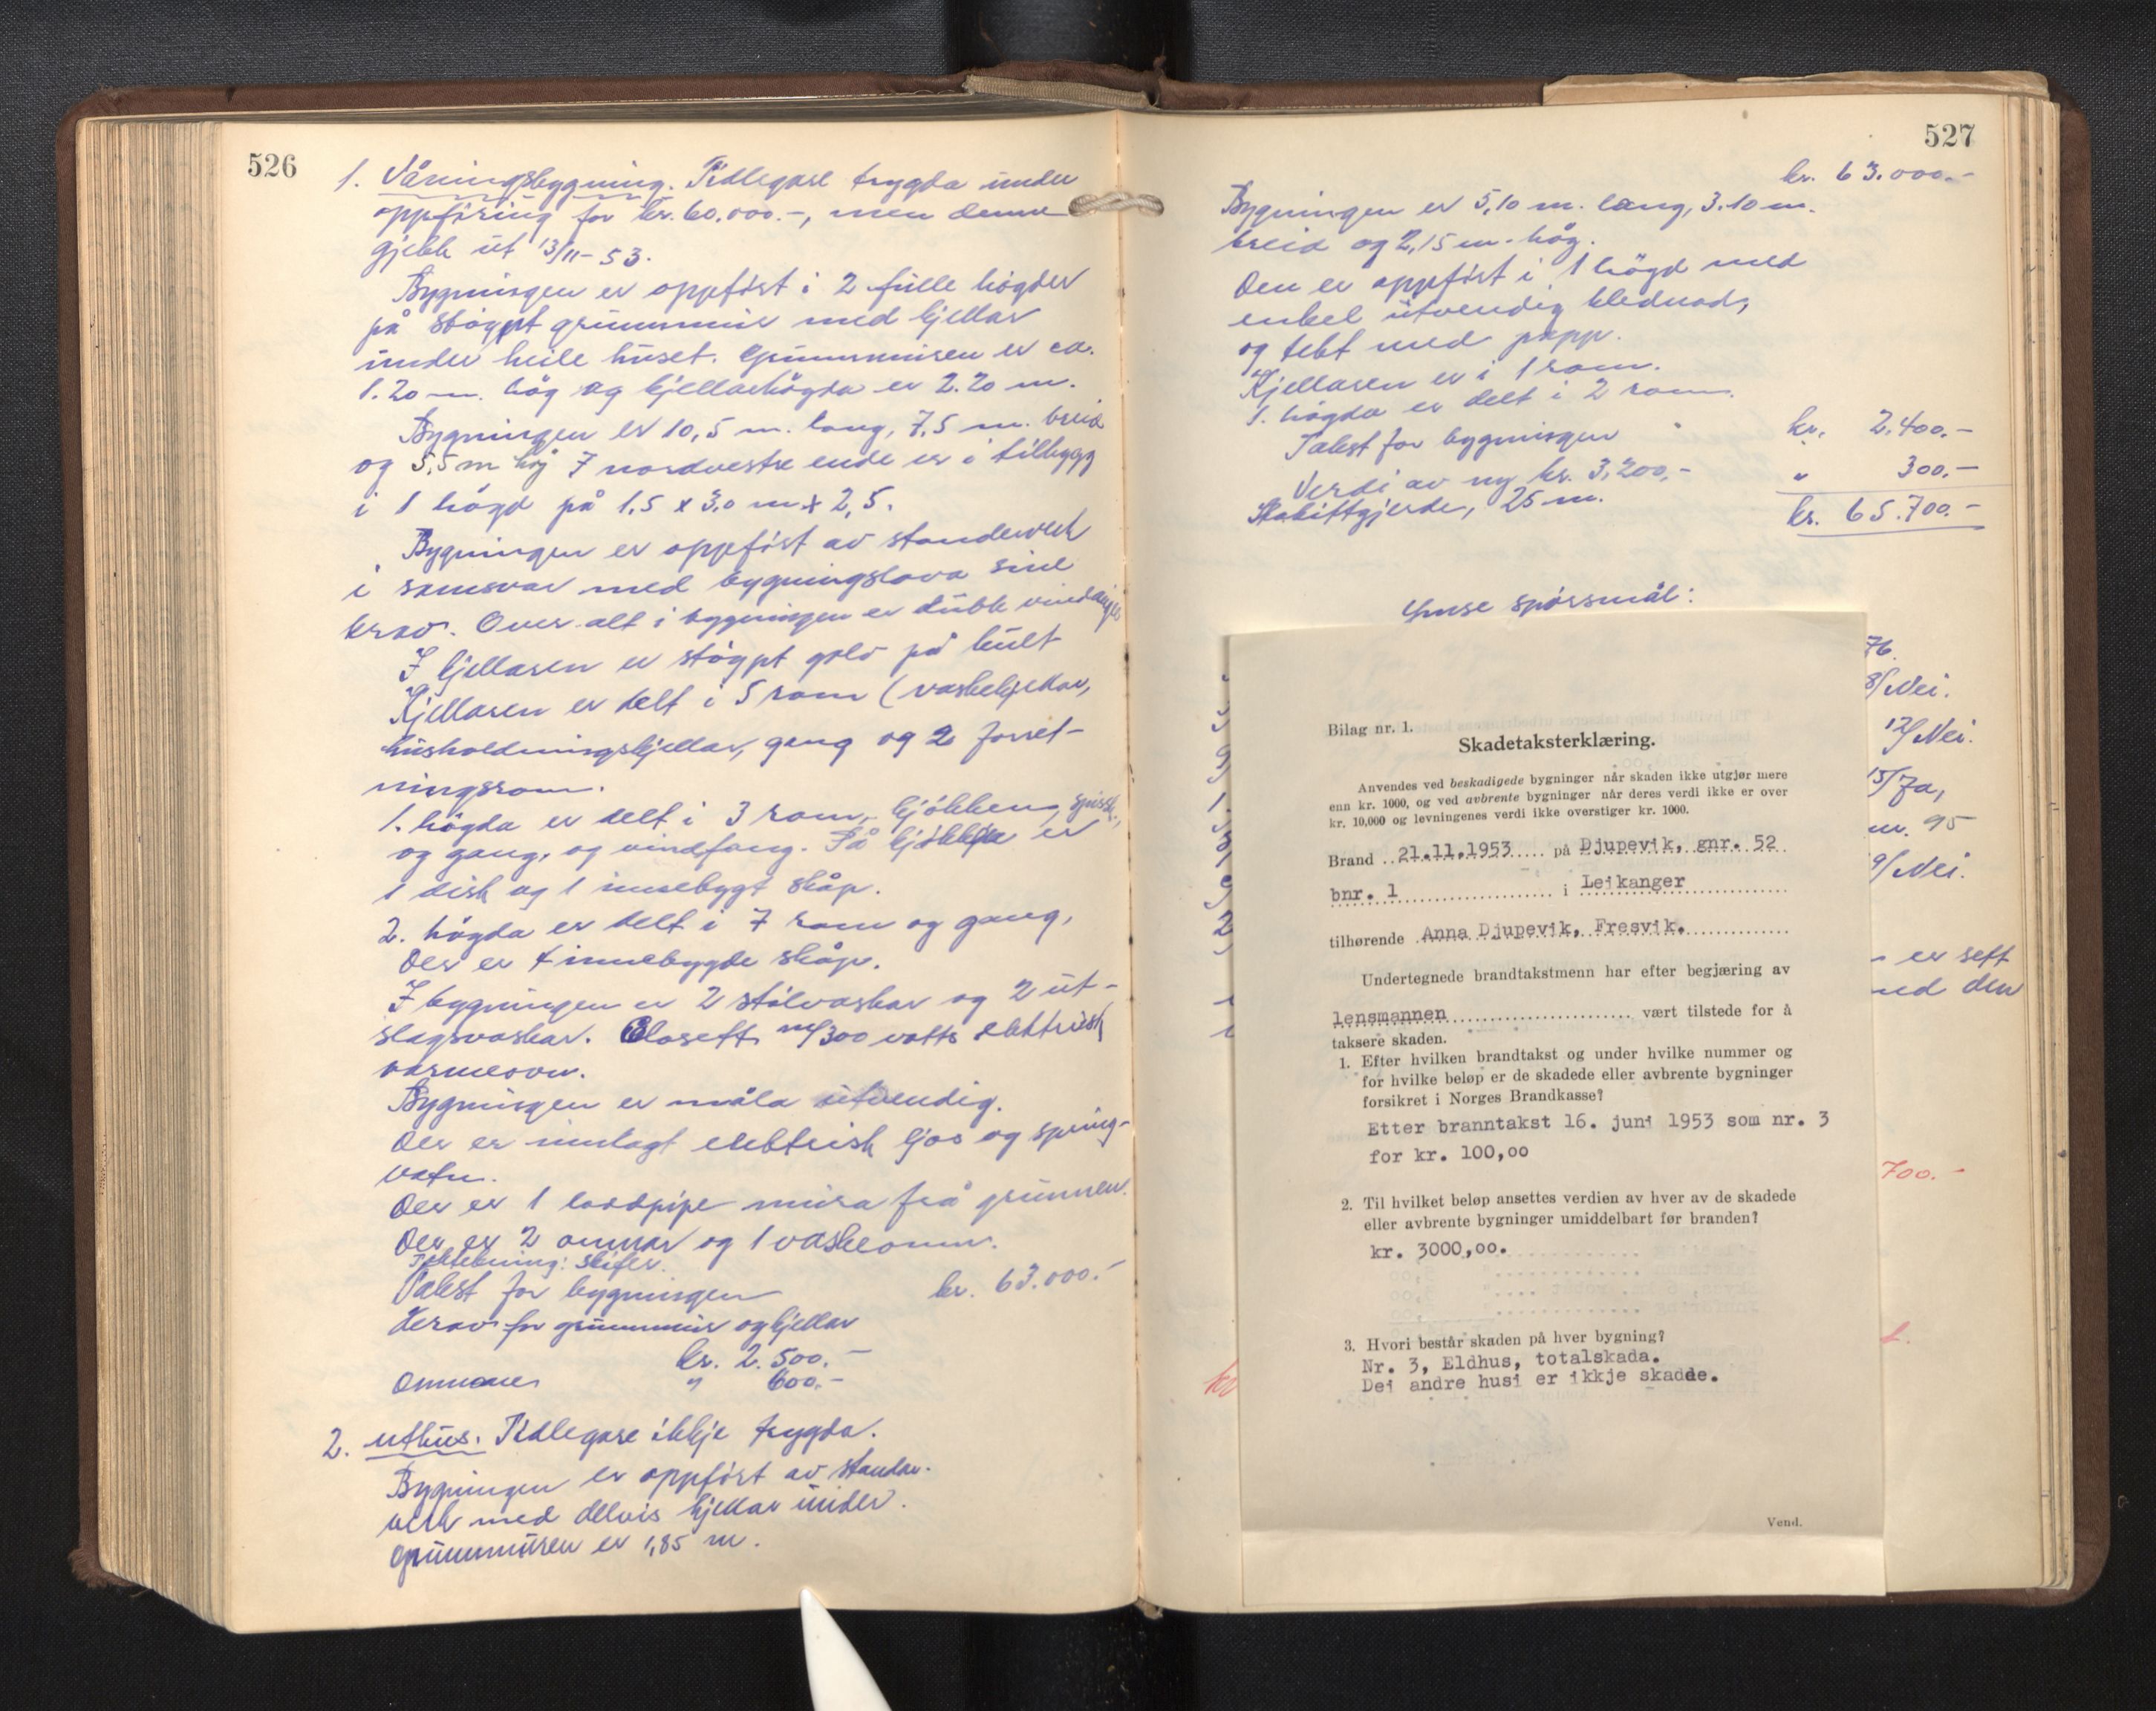 526
1. Våningsbygning. Tidlegare trygda under
oppføring for kr. 60.000.-, men denne
gjekk ut 13/11-53.
Bygningen er oppført i 2 fulle høgder
på støypt grunnmur med kjellar
under heile huset. Grunnmuren er ca.
1.20 m. høg og kjellarhøgda er 2.20 m.
Bygningen er 10,5 m. lang, 7,5 m. breid
og 5,5 m høg I nordvestre ende er i tilbygg
i 1 høgd på 1,5 x 3,0 m x 2,5.
Bygningen er oppført av standerverk
i samsvar med bygningslova sine
krav. Over alt i bygningen er dubk vindauge
I kjellaren er støypt golv på kult
Kjellaren er delt i 5 rom (vaskekjellar,
husholdningskjellar, gang og 2 forret-
ningsrom.
1. høgda er delt i 3 rom, kjøkken, spissk.,
og gang, og vindfang. På kjøkken er
1 disk og 1 innebygt skåp.
2. høgda er delt i 7 rom og gang,
Der er 4 innebygde skåp.
I bygningen er 2 stålvaskar og 2 ut-
slagsvaskar. Closett m/300 watts elektrisk
varmeovn.
Bygningen er måla utvendig.
Der er innlagt elektrisk ljos og spring-
vatn.
Der er 1 lovpipe mura frå grunnen.
Der er 2 omnar og 1 vaskeomn.
Taktekning: Skifer.
Takst for bygningen kr. 63.000.-
Herav for grunnmur og kjellar
kr. 2.500.-
Omnane " 600.-
2. Uthus. Tidlegare ikkje trygda.
Bygningen er oppført av standar-
verk med delvis kjellar under.
Grunnmuren er 1,85 m.
527
kr. 63.000.-
Bygningen er 5,10 m. lang, 3.10 m.
breid og 2,15 m. høg.
Den er oppført i 1 høgd med
enkel utvendig klednad,
og tekt med papp.
Kjellaren er i 1 rom.
1. høgda er delt i 2 rom.
Takst for bygningen kr. 2.400.-
Verdi av ny kr. 3.200.-
Stakittgjerde, 25 m. " 300.-
kr. 65.700.-
Ymse spørsmål:
76.
8/ Nei.
12/ Nei.
15/ Ja,
nr. 95
9/ Nei.
er sett
med den
700.-
kr
Bilag nr. 1.
Skadetaksterklæring.
Anvendes ved beskadigede bygninger når skaden ikke utgjør mere
enn kr. 1000, og ved avbrente bygninger når deres verdi ikke er over
kr. 10,000 og levningenes verdi ikke overstiger kr. 1000.
Brand 21.11.1953 på Djupevik, gnr. 52
bnr. 1 i Leikanger
tilhørende Anna Djupevik, Fresvik.
Undertegnede brandtakstmenn har efter begjæring av
lensmannen vært tilstede for å
taksere skaden.
1. Efter hvilken brandtakst og under hvilke nummer og
for hvilke beløp er de skadede eller avbrente bygninger
forsikret i Norges Brandkasse?
Etter branntakst 16. juni 1953 som nr. 3
for kr. 100,oo
2. Til hvilket beløp ansettes verdien av hver av de skadede
eller avbrente bygninger umiddelbart før branden?
kr. 3000,oo.
3. Hvori består skaden på hver bygning?
Nr. 3, Eldhus, totalskada.
Dei andre husi er ikkje skadde.
Vend.